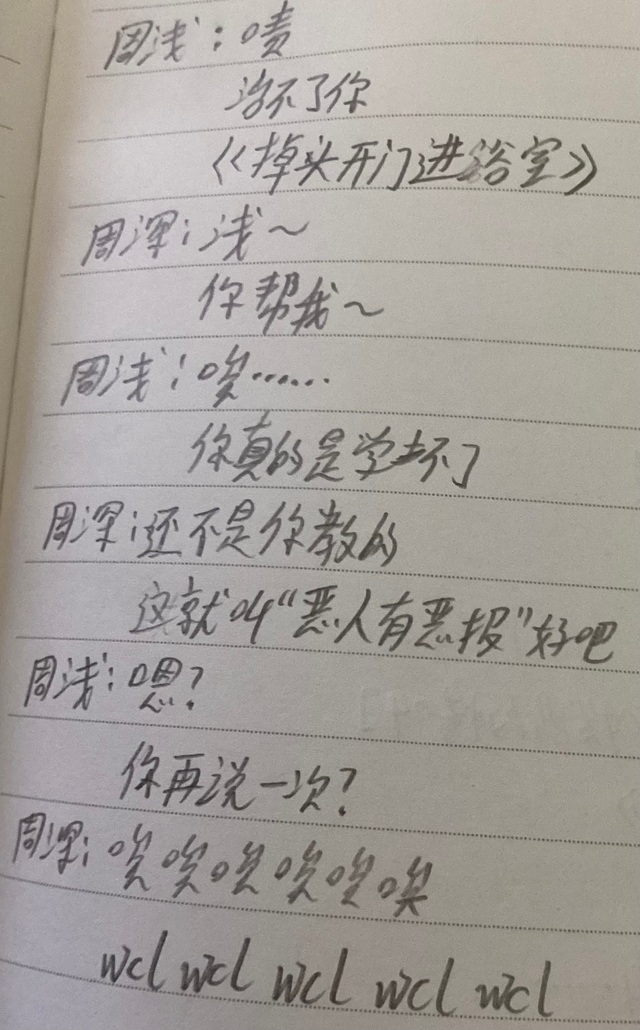 周浅：啧
治不了你
《掉头开门进浴室》
周深：浅～
你帮我～
周浅：唉……
你真的是学坏了
周深：还不是你教的
这就叫“恶人有恶报”好吧
周浅：嗯？
你再说一次？
周深：唉唉唉唉唉唉
wcl wcl wcl wcl wcl